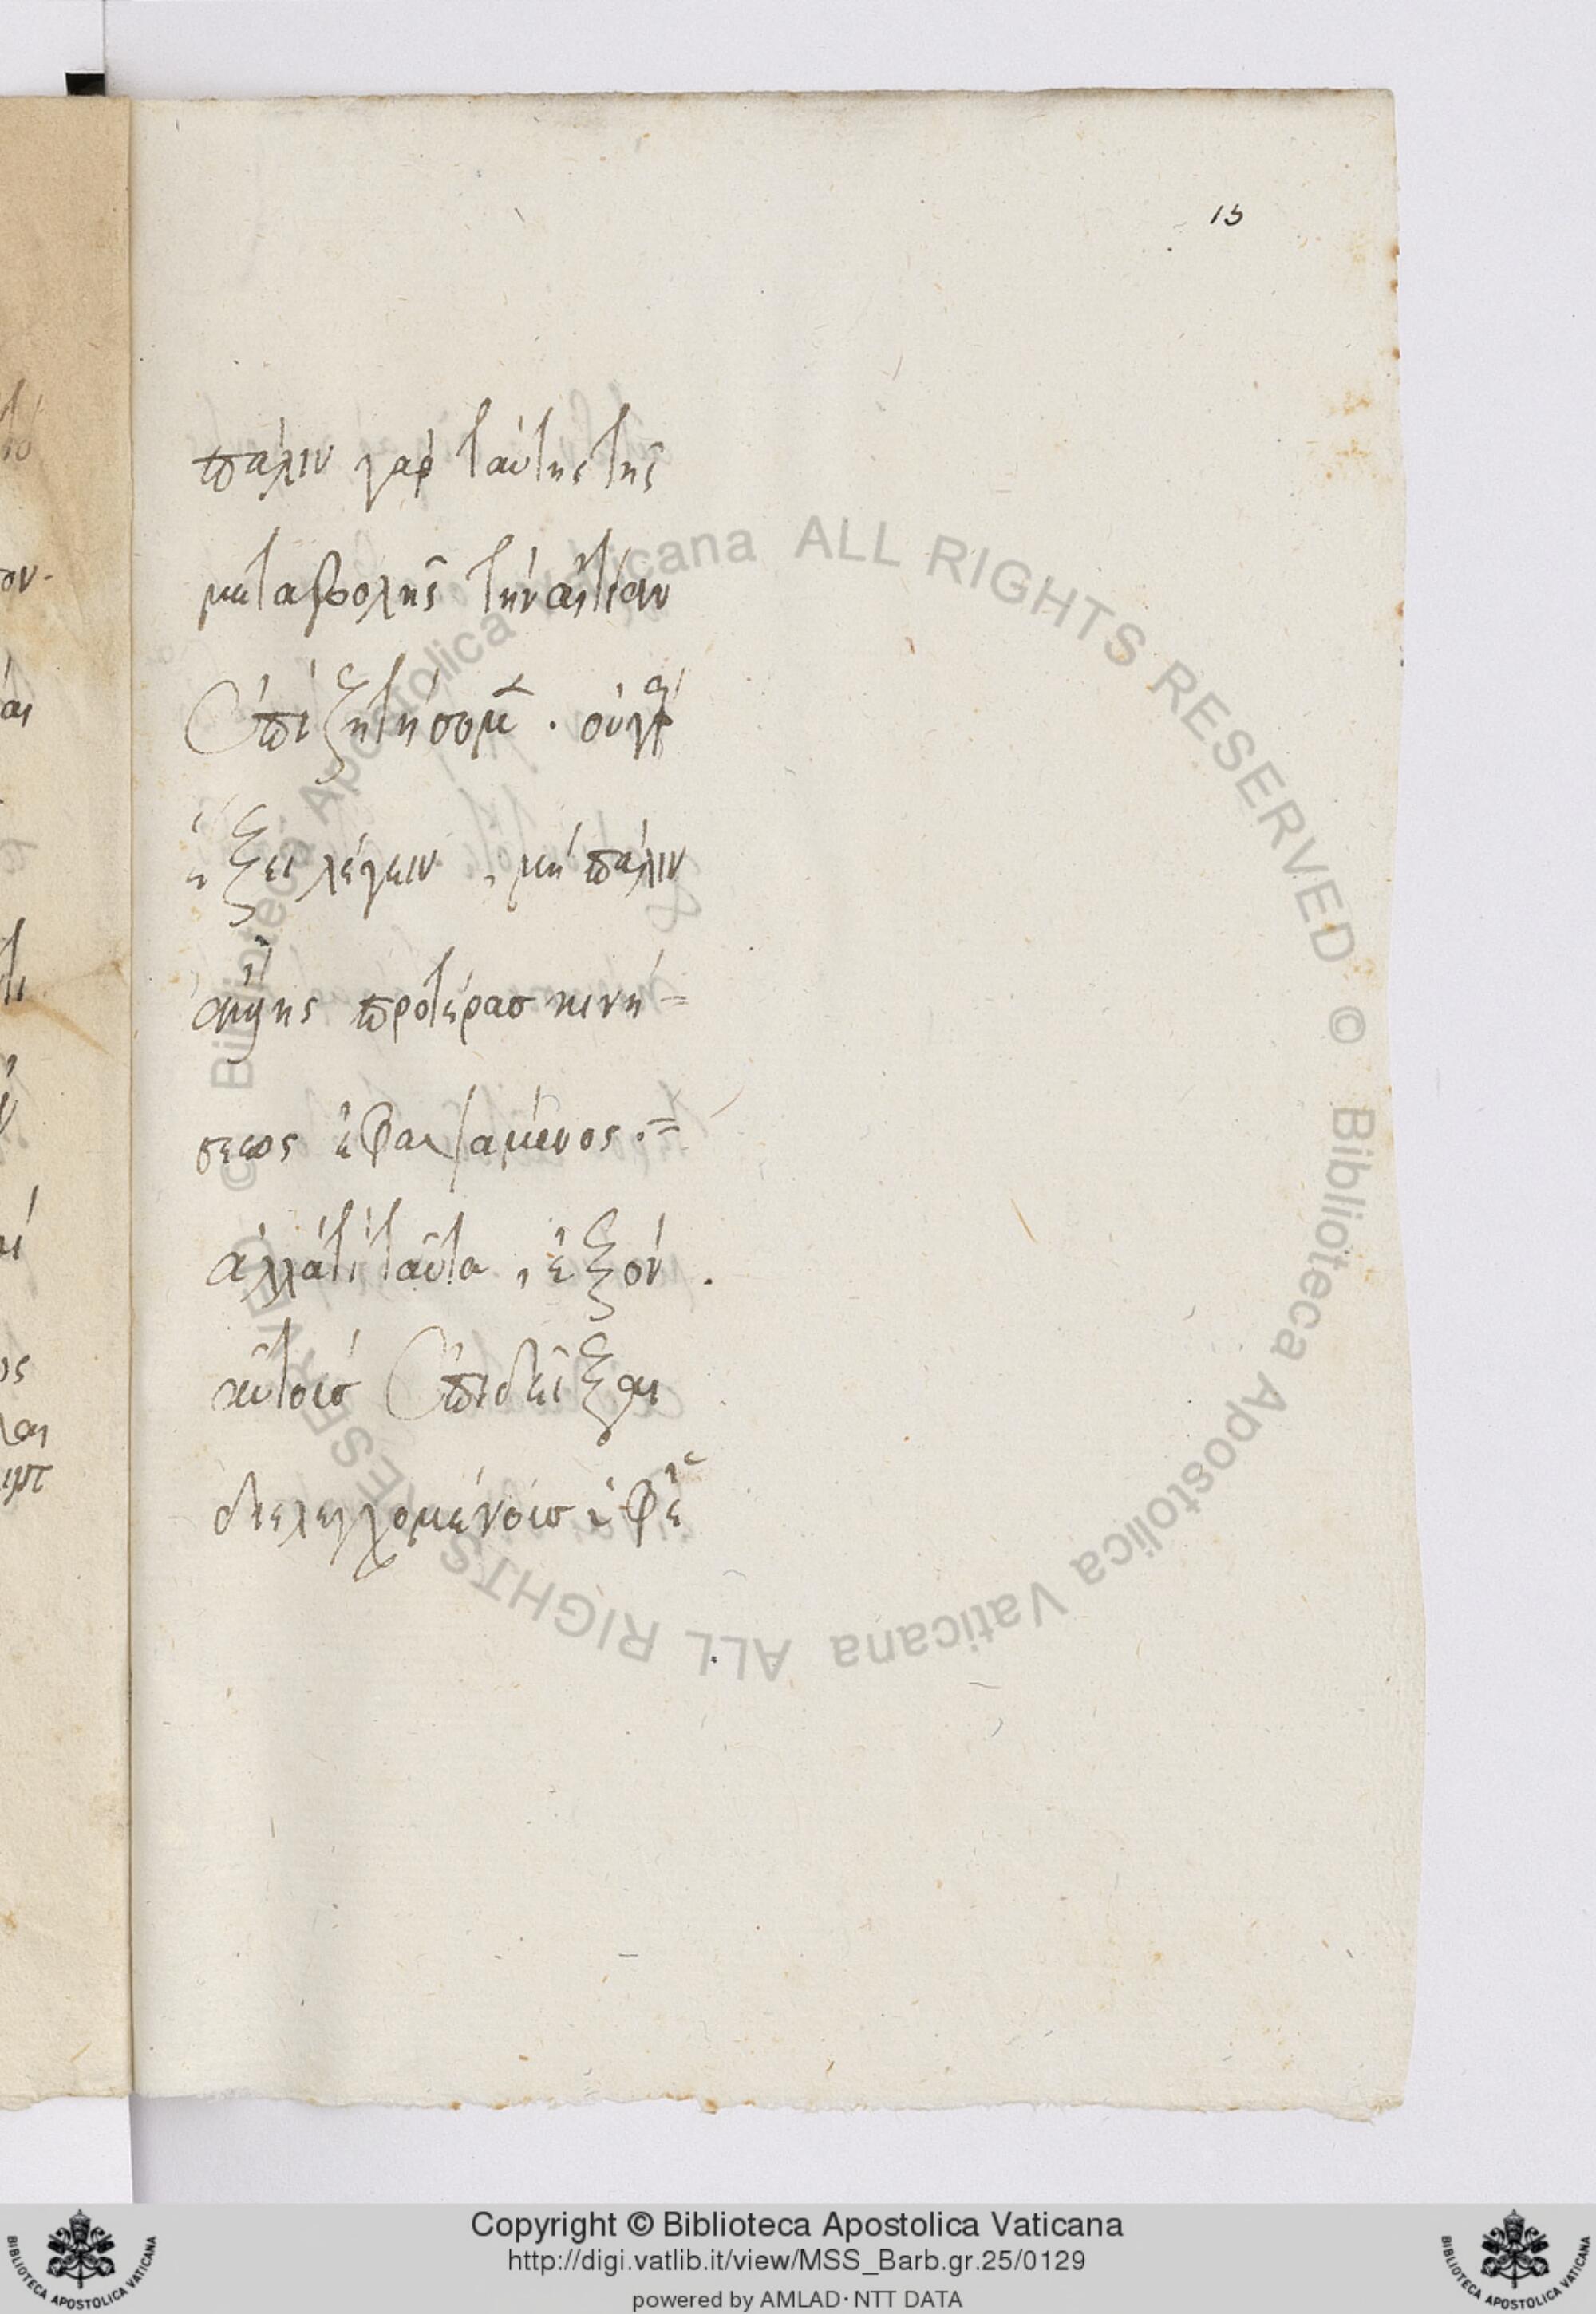 15
πάλιν γὰρ ταύτης τῆς
μεταβολῆς τὴν αἰτίαν
ἐπιζητήσομεν . οὐ γὰρ
ἕξει λέγειν , μὴ πάλιν
προτέρασ κινή=
σεως ἐφαψάμενος .=
ἀλλὰ τί ταῦτα , ἐξὸν .
αὐτοῖσ ἐπιδεῖξαι
διελεγχομένοισ ἐφ ἑ
© Biblioteca Apostolica Vaticana ALL RIGHTS RESERVED © Biblioteca Apostolica Vaticana ALL RIGHTS RESERVED
Copyright © Biblioteca Apostolica Vaticana
http://digi.vatlib.it/view/MSS_Barb.gr.25/0129
powered by AMLAD·NTT DATA
BIBLIOTECA APOSTOLICA VATICANA
BIBLIOTECA APOSTOLICA VATICANA